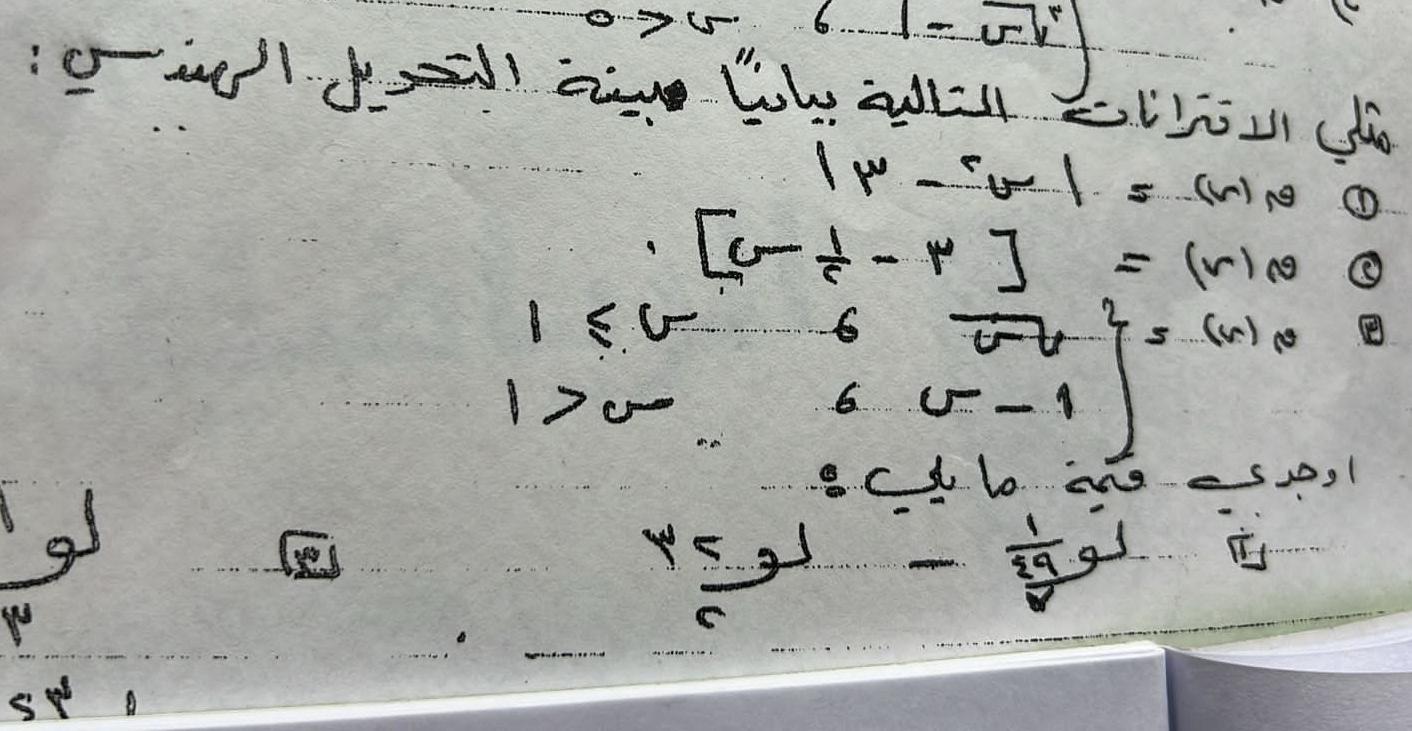 √س - ١ ، س > ٥
مثلي الاقترانات التالية بيانياً مبينة التحويل الهندسي :
① ق(س) = | س² - ٣ |
② ق(س) = [ ٣ - ½ س ]
٣ ق(س) = { √س ، س ≤ ١
١ - س ، س > ١
اوجدي قيمة ما يلي :
١ لو٧ ١/٤٩ - لو٢ ٣٢ ٣ لو
٣